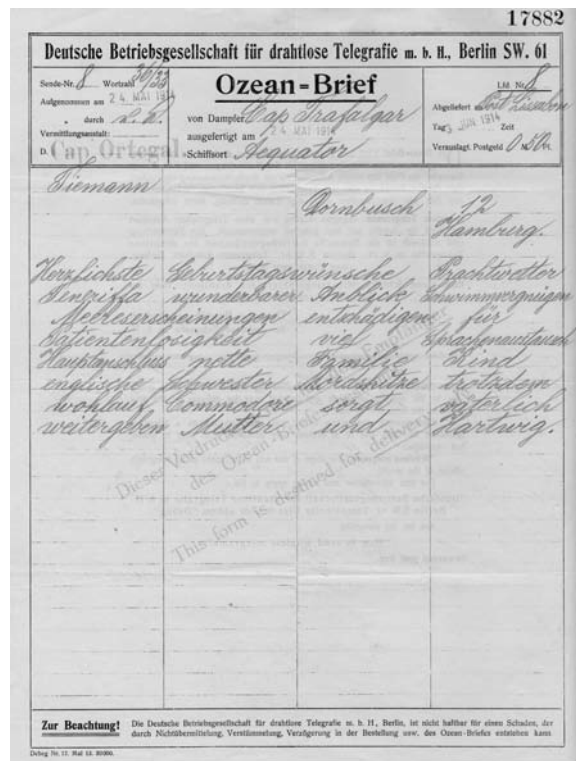 17882
Deutsche Betriebsgesellschaft für drahtlose Telegrafie m. b. H., Berlin SW. 61
Sende-Nr. 8 Wortzahl 36/33
Aufgenommen am 24. MAI 1914
" durch
Vermittlungsanstalt:
D. Cap Ortegal
Ozean-Brief
von Dampfer Cap Trafalgar
ausgefertigt am 24 MAI 1914
Schiffsort Aequator
Lfd. Nr. 8
Abgeliefert an Lissabon
Tag JUN 1914 Zeit
Verauslagt. Postgeld 0 M. 50 Pf.
Tiemann
Dornbusch 12
Hamburg.
Herzlichste Geburtstagswünsche Prachtwetter
Teneriffa wunderbarer Anblick Schwimmvergnügen
Meereserscheinungen entschädigen für
Patientenlosigkeit viel Sprachenaustausch
Hauptanschluss nette Familie Kind
englische Schwester Mordshitze trotzdem
wohlauf Commodore sorgt väterlich
weitergeben Mutter und Hartwig.
Dieser Vordruck
des Ozean-Briefes
This form is destined for delivery
Zur Beachtung! Die Deutsche Betriebsgesellschaft für drahtlose Telegrafie m. b. H., Berlin, ist nicht haftbar für einen Schaden, der
durch Nichtübermittelung, Verstümmelung, Verzögerung in der Bestellung usw. des Ozean-Briefes entstehen kann
Debeg Nr. 11. Mai 13.